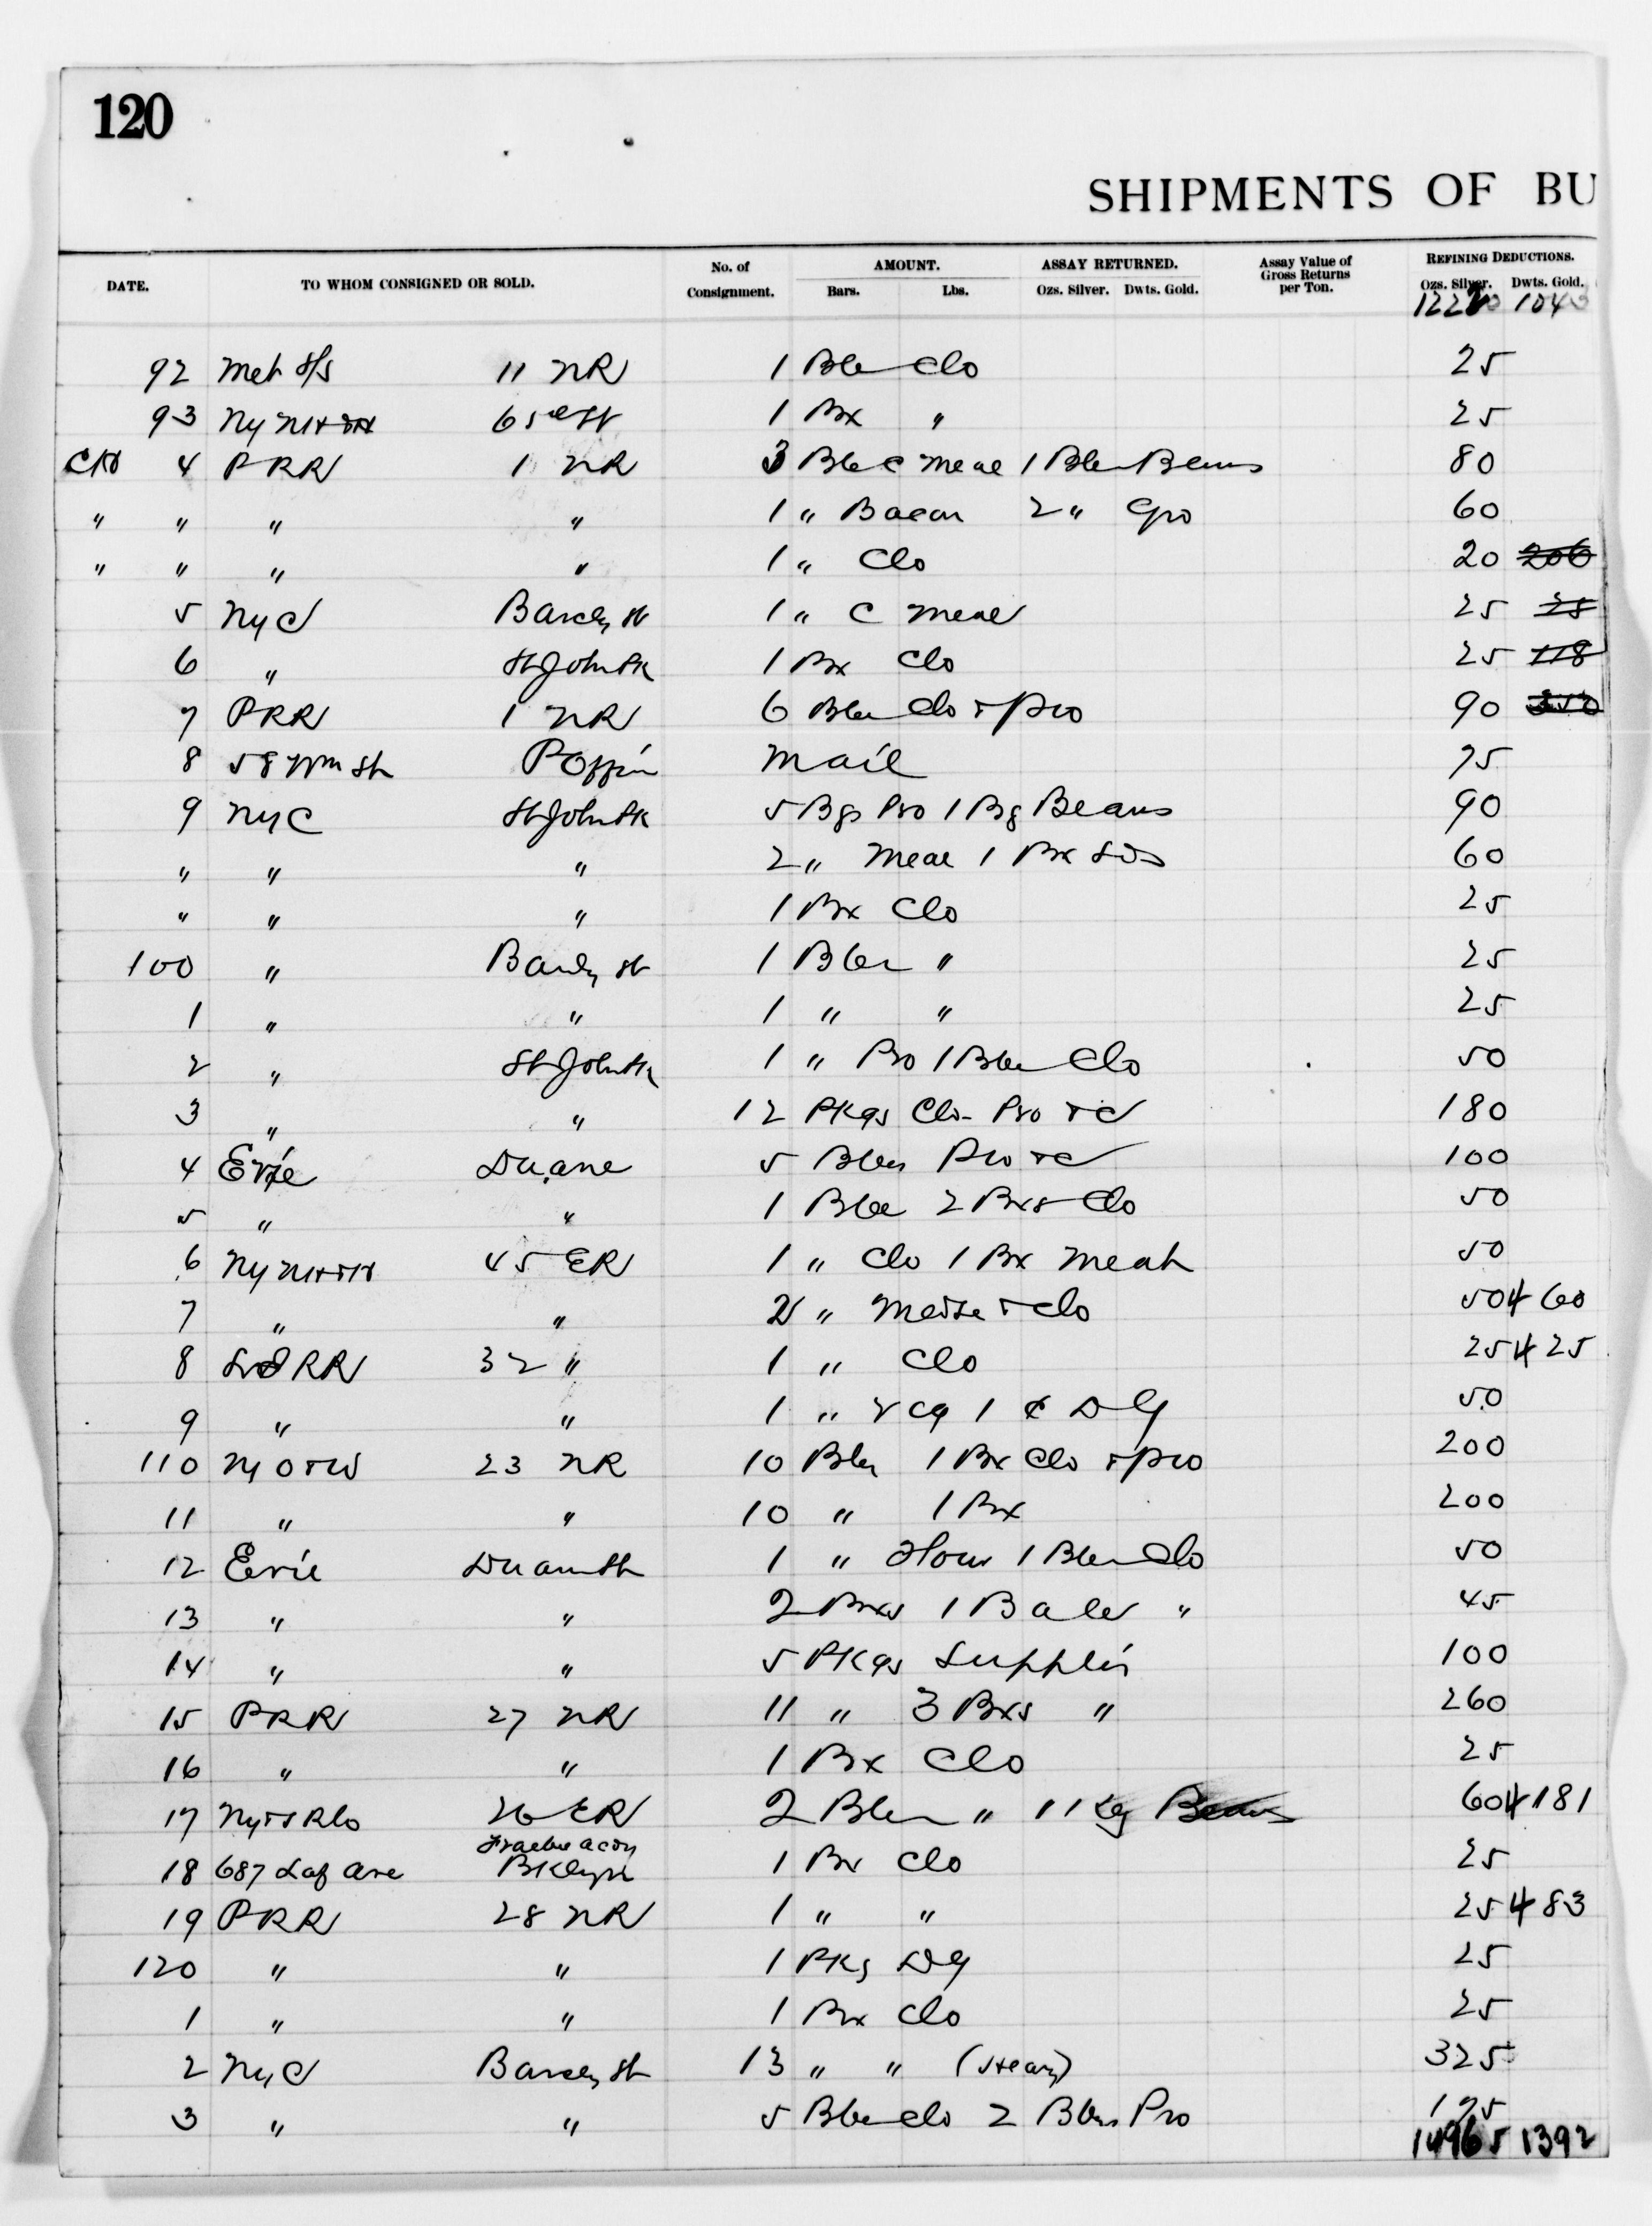 120
SHIPMENTS OF BU
DATE. TO WHOM CONSIGNED OR SOLD. No. of Consignment. AMOUNT. Bars. Lbs. ASSAY RETURNED. Ozs. Silver. Dwts. Gold. Assay Value of Gross Returns per Ton. REFINING DEDUCTIONS. Ozs. Silver. Dwts. Gold.
92 Met S/S 11 NR 1 Ble Clo 25
93 Ny NH & H 65 1 Bx " 25
4 PRR 1 NR 3 Ble C Meal 1 Ble Beans 80
" " " " 1 " Bacon 2 " Gro 60
" " " " 1 " Clo 20 206
5 NyC Barcly St 1 " C Meal 25 25
6 " St John Pk 1 Bx Clo 25 118
7 PRR 1 NR 6 Bles Clo & Pro 90 350
8 58 Wm St POffin Mail 75
9 NyC St John Pk 5 Bgs Pro 1 Bg Beans 90
" " " 2 " Meal 1 Bx 60
" " " 1 Bx Clo 25
100 " Barcly St 1 Bler " 25
1 " " 1 " " 25
2 " St John Pk 1 " Pro 1 Ble Clo 50
3 " " 12 Pkgs Clo - Pro & C 180
4 Erie Duane 5 Bles Pro & C 100
5 " " 1 Ble 2 Bxs Clo 50
6 Ny NH & H 45 ER 1 " Clo 1 Bx Meat 50
7 " " 2 " & Clo 50 4 60
8 RR 32 " 1 " Clo 25 4 25
9 " " 1 " 1 C DG 50
110 Ny O & W 23 NR 10 Bls 1 Bx Clo & Pro 200
11 " " 10 " 1 Bx 200
12 Erie Duane St 1 " Flour 1 Ble Clo 50
13 " " 2 Bxs 1 Bale " 45
14 " " 5 Pkgs Supplis 100
15 PRR 27 NR 11 " 3 Bxs " 260
16 " " 1 Bx Clo 25
17 26 ER 2 Bler " 1 1 Kg Beans 60 4 181
18 687 Laf Ave BKlyn 1 Bx Clo 25
19 PRR 28 NR 1 " " 25 4 83
120 " " 1 Pkg DG 25
1 " " 1 Bx Clo 25
2 NyC Barcly St 13 " " (Heavy) 325
3 " " 5 Ble Clo 2 Bles Pro 175
14965 1392